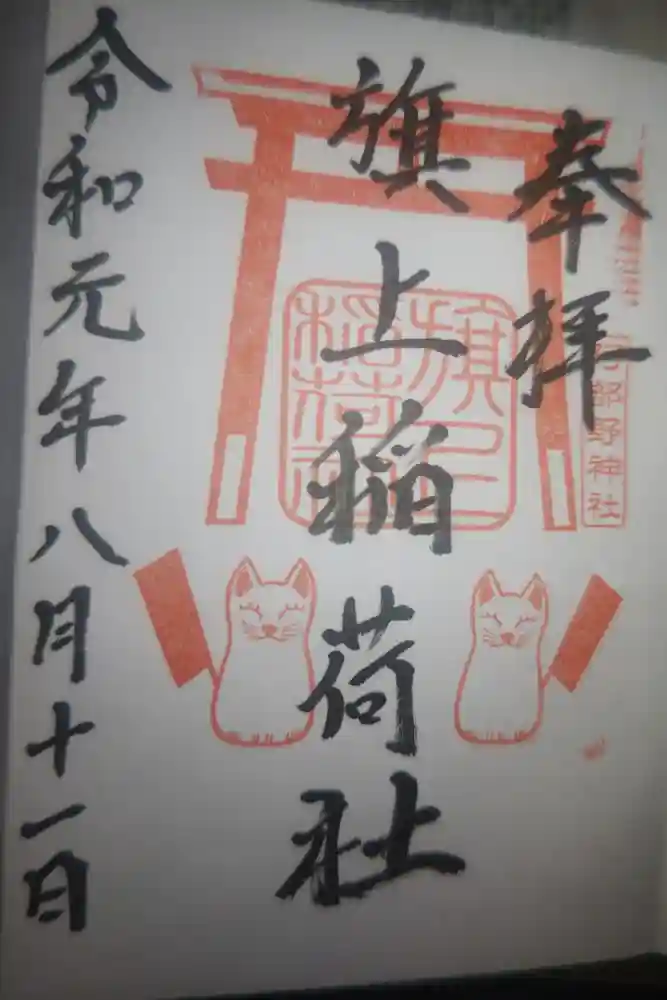 奉拝
阿部野神社
旗上稲荷社
旗上
稲荷社
令和元年八月十一日